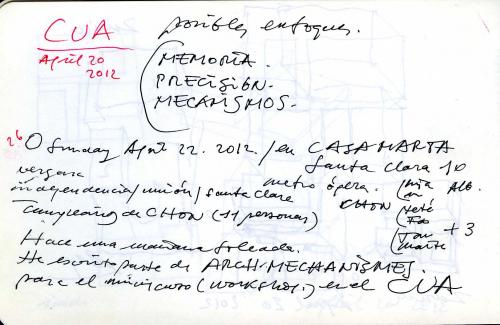 CUA posibles enfoques.
April 20
2012
MEMORIA.
PRECISIÓN.
MECANISMOS.
26 O Sunday April 22. 2012. / en CASA MARTA
Santa Clara 10
vergara metro ópera.
independencia/unión/santa clare
Cumpleaños de CHON (11 personas) CHON
+3
Hace una mañana soleada.
He escrito parte de ARCH-MECHANISMES.
para el minicurso (workshop.) en el CUA